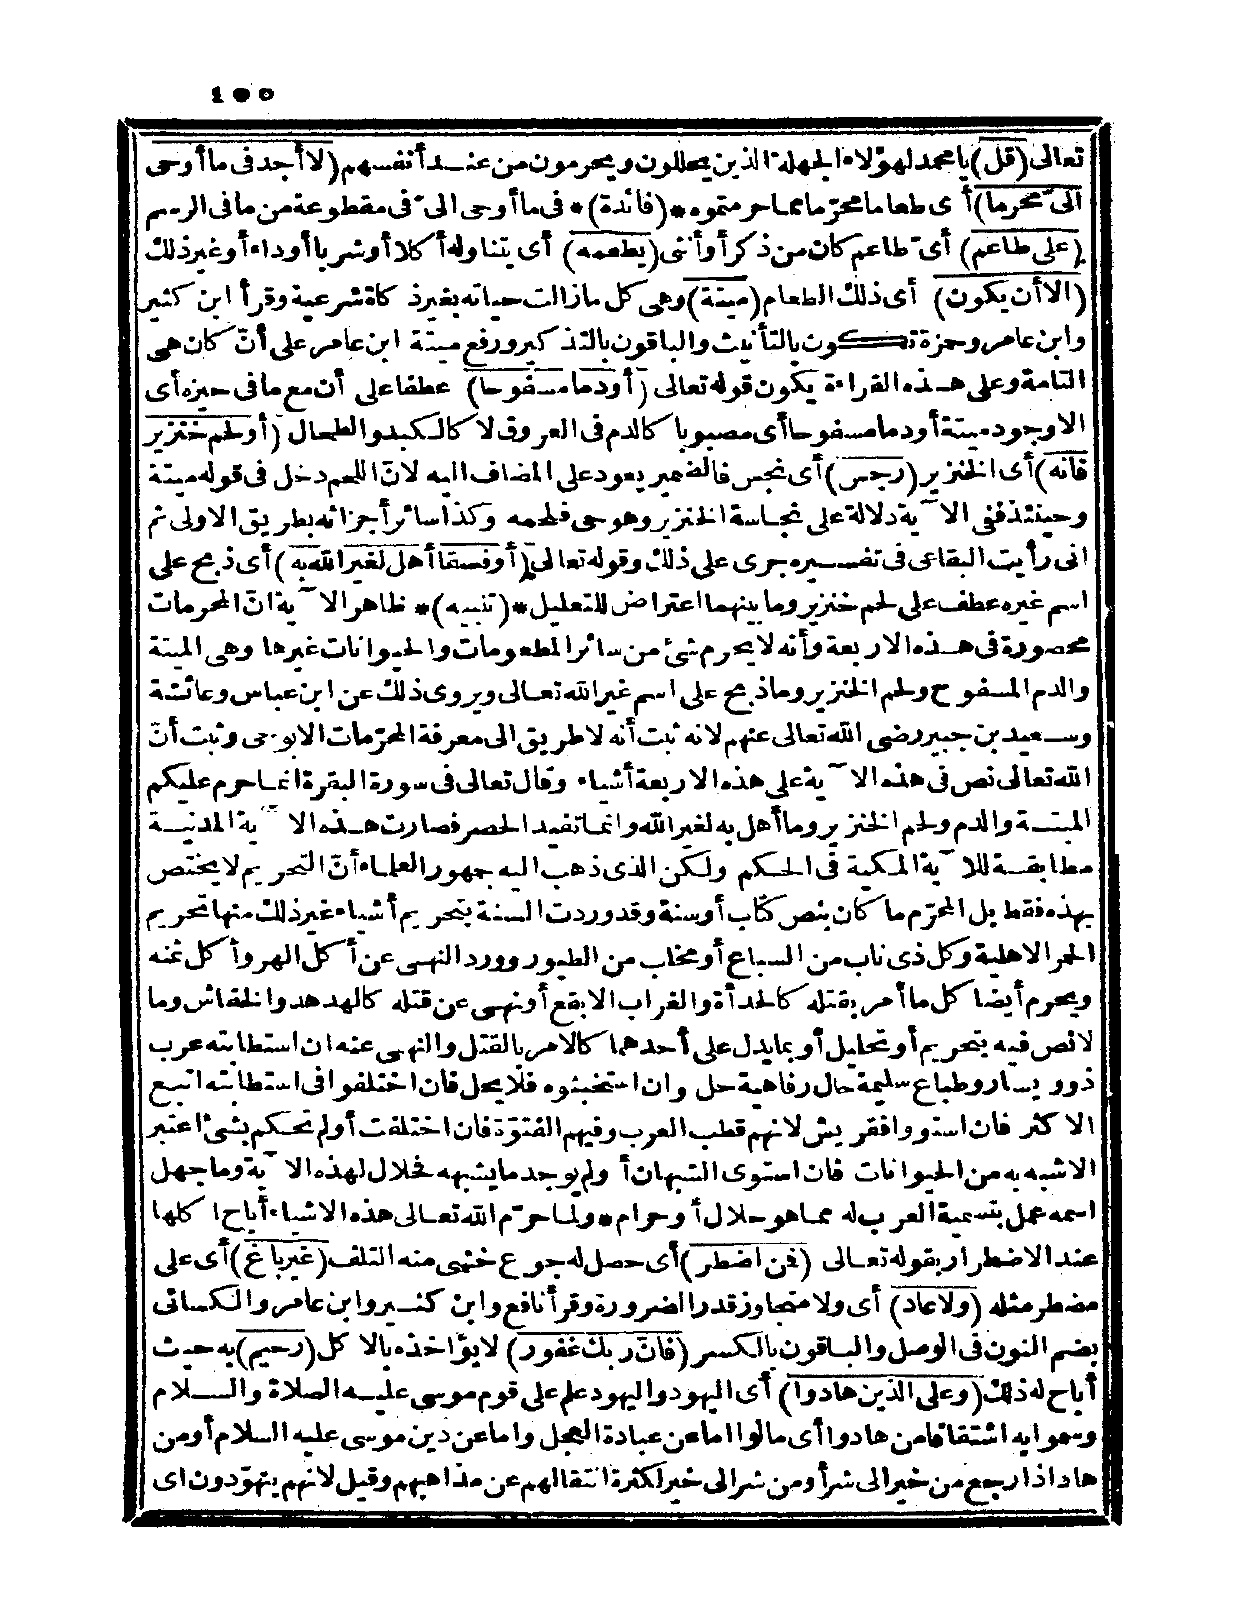 ٤٥٥
تعالى (قل) يا محمد لهؤلاء الجهلة الذين يحللون ويحرمون من عند أنفسهم (لا أجد فى ما أوحى
الىّ محرما) أى طعاما محرّما مما حرمتموه *(فائدة)* فى ما أوحى الىّ فى مقطوعة من ما فى الرسم
(على طاعم) أىّ طاعم كان من ذكر أو أنثى (يطعمه) أى يتناوله أكلا أو شربا أو دواء أو غير ذلك
(الا أن يكون) أى ذلك الطعام (ميتة) وهى كل ما زالت حياته بغير ذكاة شرعية وقرأ ابن كثير
وابن عامر وحمزة تكون بالتأنيث والباقون بالتذكير ورفع ميتة ابن عامر على أنّ كان هى
التامة وعلى هذه القراءة يكون قوله تعالى (أو دما مسفوحا) عطفا على أن مع ما فى حيزه أى
الا وجود ميتة أو دما مسفوحا أى مصبوبا كالدم فى العروق لا كالكبد والطحال (أو لحم خنزير
فانه) أى الخنزير (رجس) أى نجس فالضمير يعود على المضاف اليه لانّ اللحم دخل فى قوله ميتة
وحينئذ ففى الآية دلالة على نجاسة الخنزير وهو حى فلحمه وكذا سائر أجزائه بطريق الاولى ثم
انى رأيت البقاعى فى تفسيره جرى على ذلك وقوله تعالى (أو فسقا أهل لغير الله به) أى ذبح على
اسم غيره عطف على لحم خنزير وما بينهما اعتراض للتعليل *(تنبيه)* ظاهر الآية انّ المحرمات
محصورة فى هذه الاربعة وأنه لا يحرم شئ من سائر المطعومات والحيوانات غيرها وهى الميتة
والدم المسفوح ولحم الخنزير وما ذبح على اسم غير الله تعالى ويروى ذلك عن ابن عباس وعائشة
وسعيد بن جبير رضى الله تعالى عنهم لانه ثبت أنه لا طريق الى معرفة المحرّمات الا بوحى وثبت أنّ
الله تعالى نص فى هذه الآية على هذه الاربعة أشياء وقال تعالى فى سورة البقرة انما حرم عليكم
الميتة والدم ولحم الخنزير وما أهل به لغير الله وانما تفيد الحصر فصارت هذه الآية المدنية
مطابقة للآية المكية فى الحكم ولكن الذى ذهب اليه جمهور العلماء أنّ التحريم لا يختص
بهذه فقط بل المحرّم ما كان بنص كتاب أو سنة وقد وردت السنة بتحريم أشياء غير ذلك منها تحريم
الحمر الاهلية وكل ذى ناب من السباع أو مخلب من الطيور وورد النهى عن أكل الهر وأكل ثمنه
ويحرم أيضا كل ما أمر بقتله كالحدأة والغراب الابقع أو نهى عن قتله كالهدهد والخفاش وما
لا نص فيه بتحريم أو تحليل أو بما يدل على أحدهما كالامر بالقتل والنهى عنه ان استطابته عرب
ذوو يسار وطباع سليمة حال رفاهية حل وان استخبثوه فلا يحل فان اختلفوا فى استطابته اتبع
الاكثر فان استووا فقريش لانهم قطب العرب وفيهم الفتوّة فان اختلفت أو لم تحكم بشئ اعتبر
الاشبه به من الحيوانات فان استوى الشبهان أو لم يوجد ما يشبهه فحلال لهذه الآية وما جهل
اسمه عمل بتسمية العرب له مما هو حلال أو حرام * ولما حرّم الله تعالى هذه الاشياء أباح أكلها
عند الاضطرار بقوله تعالى (فمن اضطر) أى حصل له جوع خشى منه التلف (غير باغ) أى على
مضطر مثله (ولا عاد) أى ولا متجاوز قدر الضرورة وقرأ نافع وابن كثير وابن عامر والكسائى
بضم النون فى الوصل والباقون بالكسر (فانّ ربك غفور) لا يؤاخذه بالاكل (رحيم) به حيث
أباح له ذلك (وعلى الذين هادوا) أى اليهود واليهود علم على قوم موسى عليه الصلاة والسلام
وسموا به اشتقاقا من هادوا أى مالوا اما عن عبادة العجل واما عن دين موسى عليه السلام أو من
هاد اذا رجع من خير الى شر أو من شر الى خير لكثرة انتقالهم عن مذاهبهم وقيل لانهم يتهوّدون اى